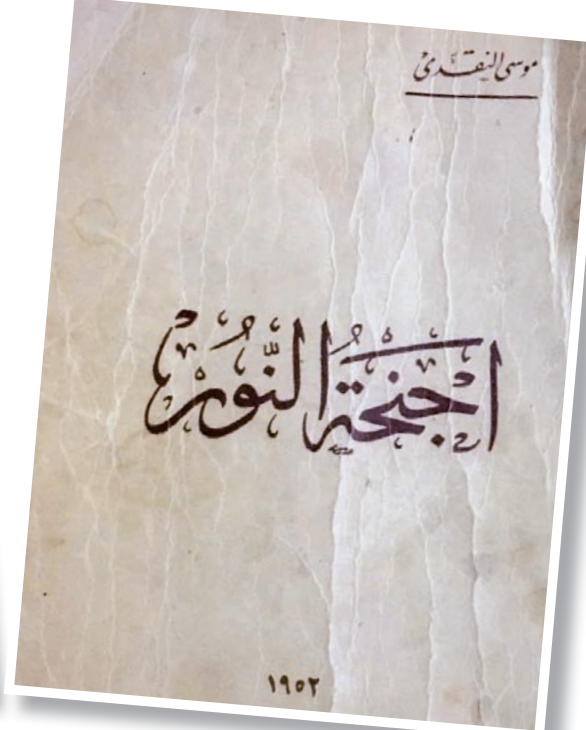 موسى النقدي
اجنحة النُّور
١٩٥٢